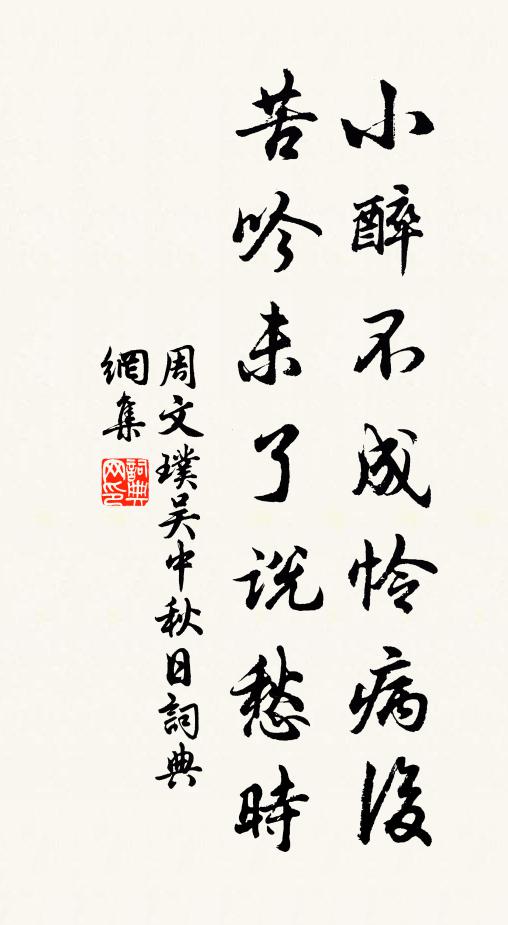 小醉不成怜病後
苦吟未了說愁時
周文璞吴中秋日詞典
網集
詞典
网印